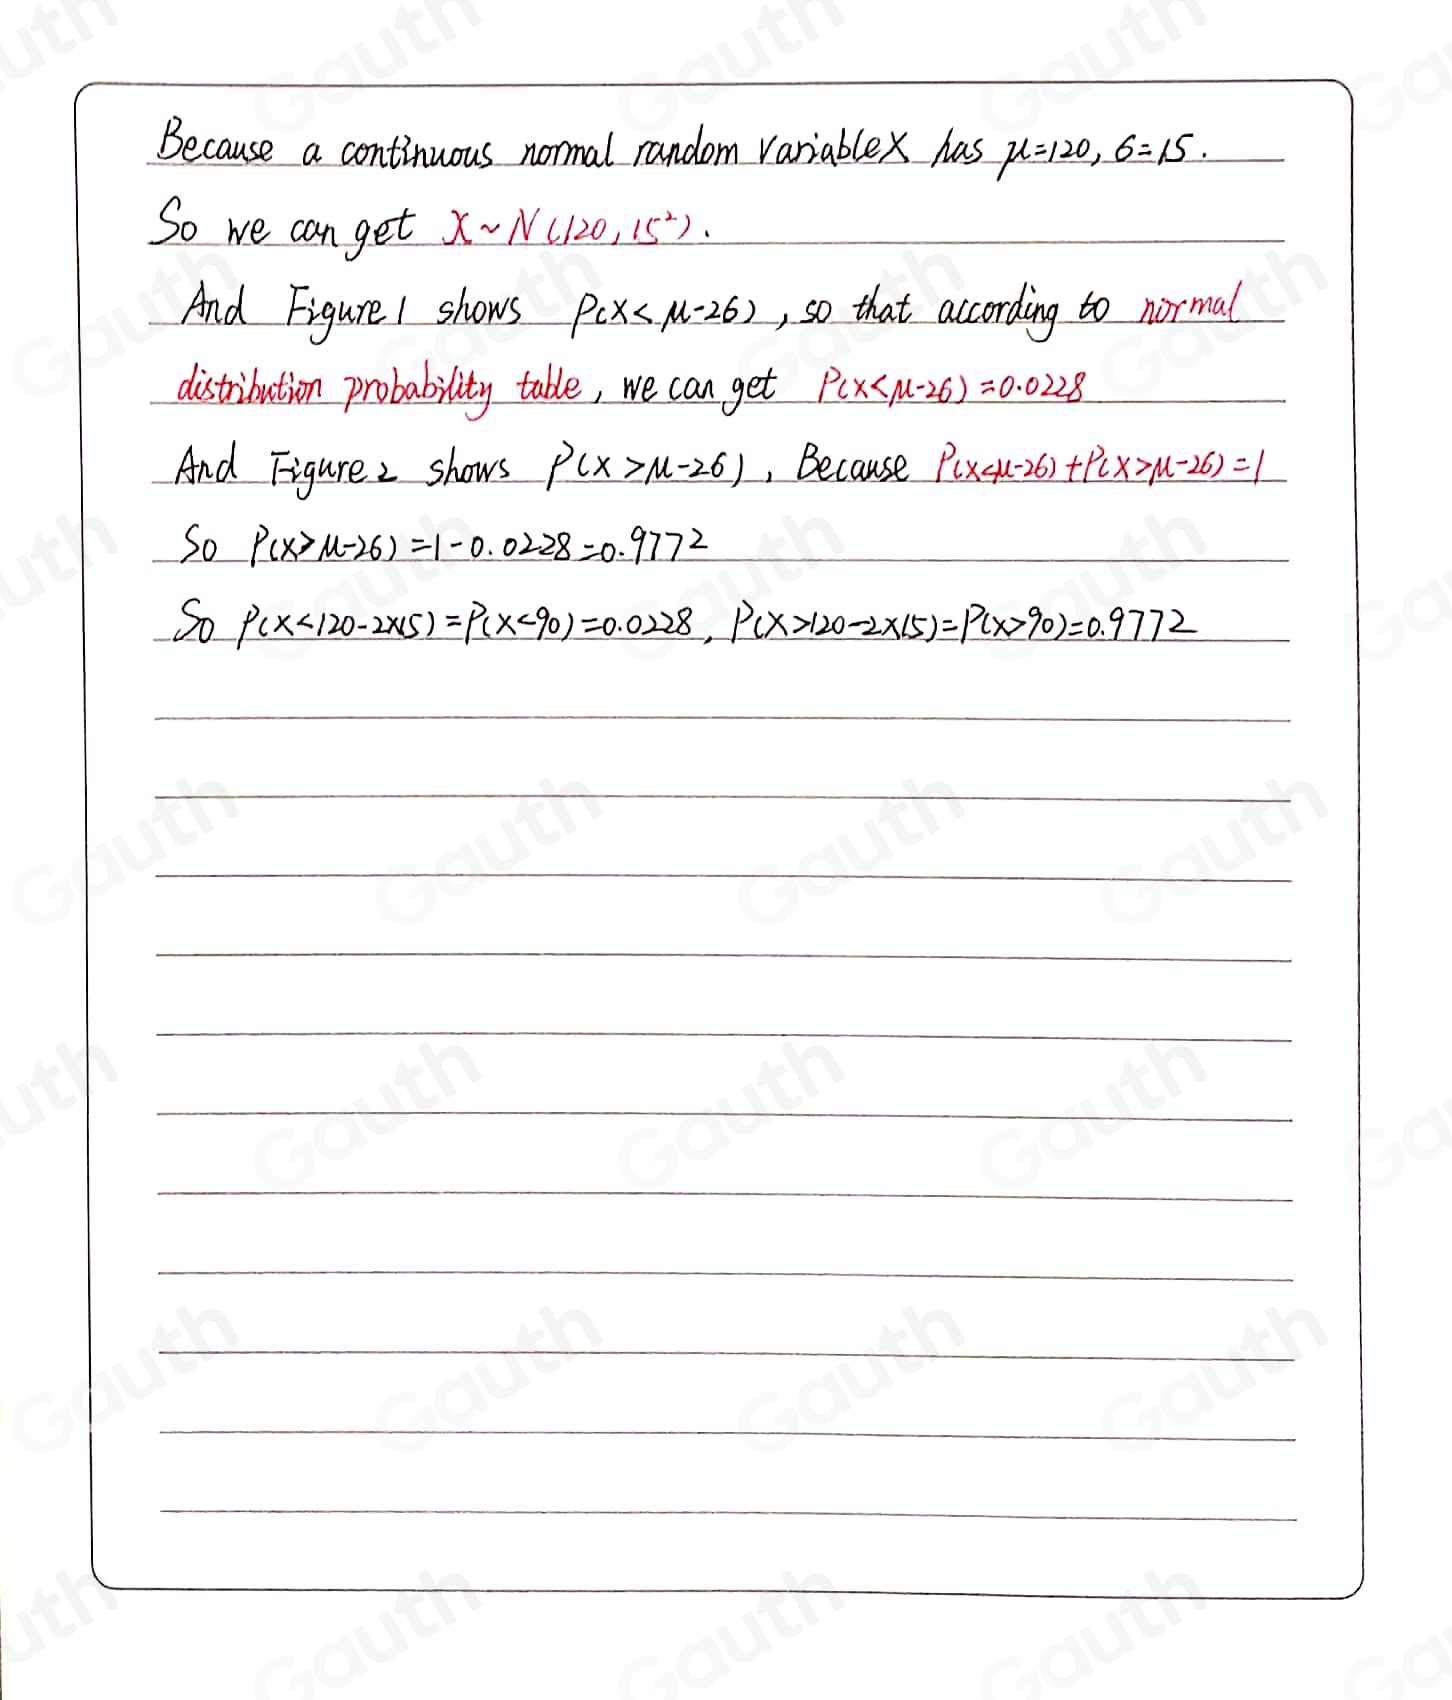 Because a continuous normal random variable X has μ=120, σ=15.
So we can get X~N(120,15²).
And Figure 1 shows P(X<μ-2σ), so that according to normal
distribution probability table, we can get P(X<μ-2σ)=0.0228
And Figure 2 shows P(X>μ-2σ), Because P(X<μ-2σ)+P(X>μ-2σ)=1
So P(X>μ-2σ)=1-0.0228=0.9772
So P(X<120-2×15)=P(X<90)=0.0228, P(X>120-2×15)=P(X>90)=0.9772
Gauth